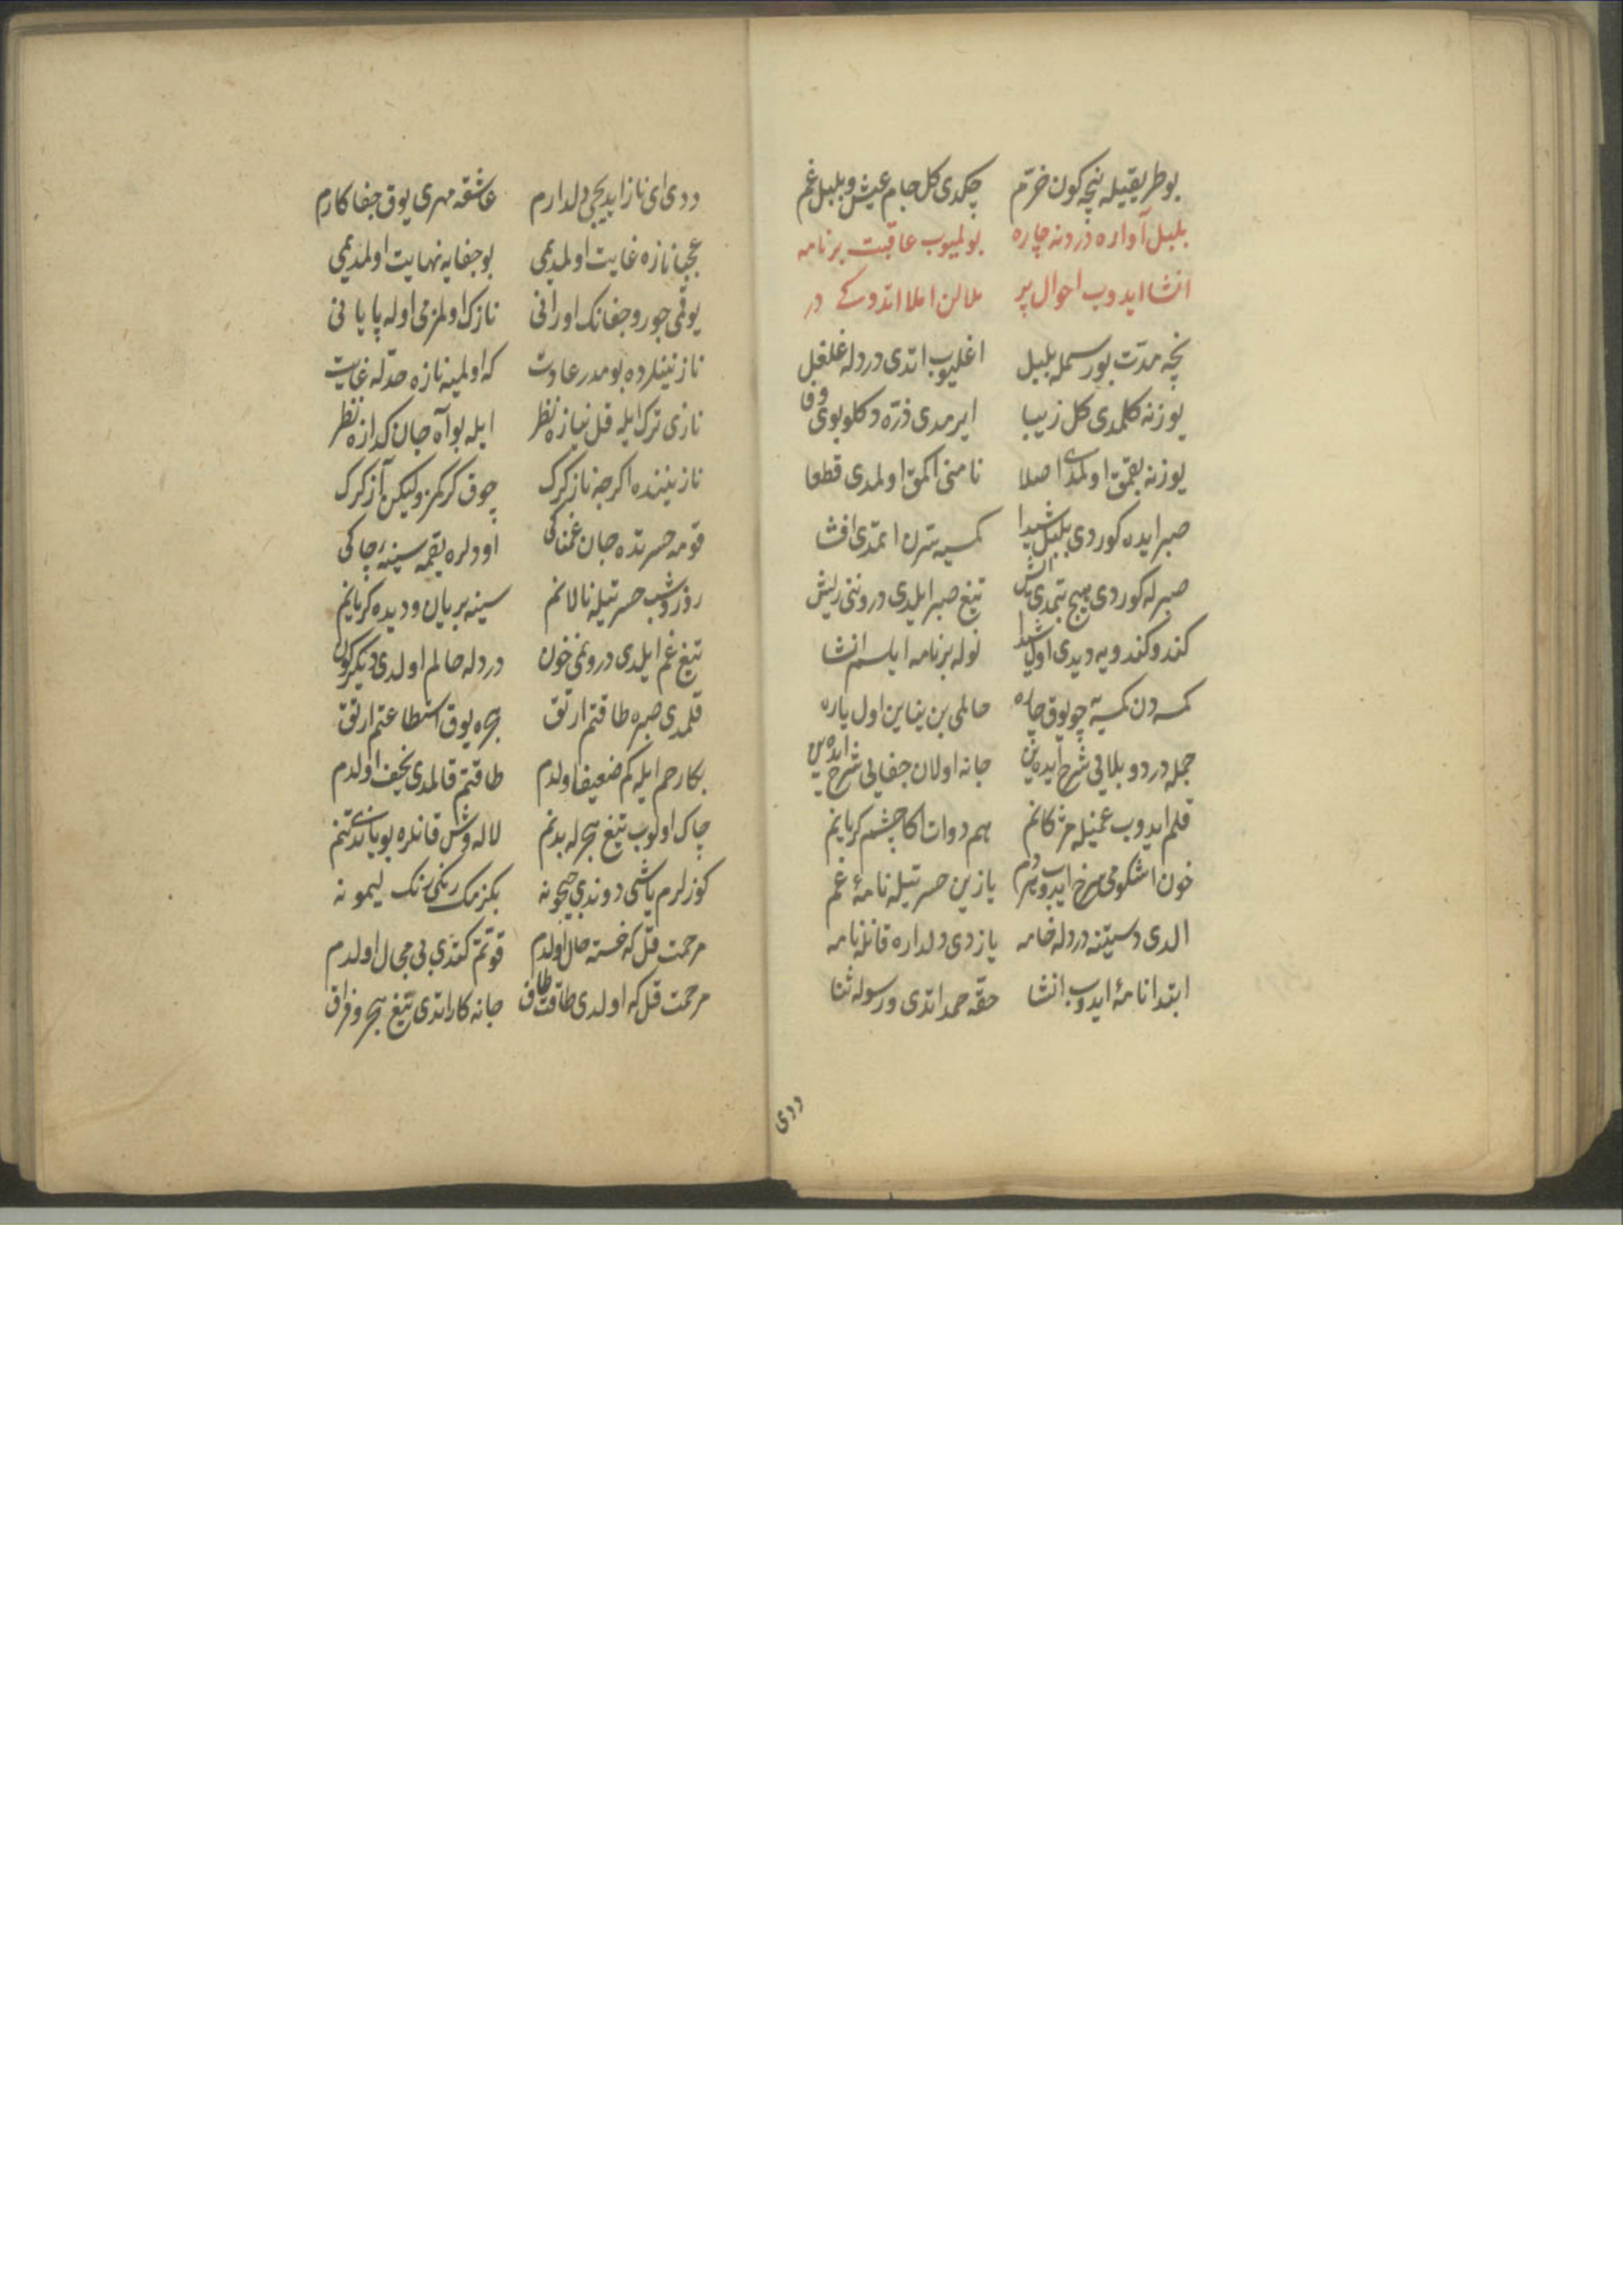 بوطریقیله نیچه کون خرّم چکدی کل جام عیش و بلبل غم
بلبل آواره دردینه چاره بولمیوب عاقبت برنامه
انشا ایدوب احوال پر ملالن املا اتدوکی در
نچه مدّت بو رسمله بلبل اغلیوب اتدی دردله غلغل
یوزنه کلمدی کل زیبا ایرمدی ذرّه دکلو بوی وفا
یوزنه بقمق اولمدی اصلا نامنی اکمق اولمدی قطعا
صبر ایده کوردی بلبل شیدا کمسیه سرّن اتمدی افشا
صبرله کوردی هیچ بتمدی ایش تیغ صبر ایلدی دروننی ریش
کندو کندویه دیدی اول شیدا نوله برنامه ایلسم انشا
کمسه دن کمسیه چو یوق چاره حالمی بن ینه یازین اول یاره
جمله درد و بلایی شرح ایده ین جانه اولان جفایی شرح ایده ین
قلم ایدوب غمیله مژکانم هم دوات اکا چشم کریانم
خون اشکومی سرخ ایدوب هر دم یازین حسرتیله نامهٔ غم
الدی دستینه دردله خامه یازدی دلداره قانله نامه
ابتدا نامهٔ ایدوب انشا حقّه حمد اتدی و رسوله ثنا
ددی
ددی ای ناز ایدیجی دلدارم عاشقه مهری یوق جفاکارم
عجبا نازه غایت اولمدیمی بو جفایه نهایت اولمدیمی
یوقمی جور و جفانک اورانی نازک اولمزمی اوله پایانی
نازنینلرده بومیدر عادت که اولمیه نازه حدّله غایت
نازی ترک ایله قل نیازه نظر ایله بو آه جان کدازه نظر
نازنینده اکرچه ناز کرک چوق کرکمز ولیکن آز کرک
قومه حسرتده جان غمناکی اودلره یقمه سینهٔ چاکی
روز و شب حسرتیله نالانم سینه بریان و دیده کریانم
تیغ غم ایلدی درونمی خون دردله حالم اولدی دیکرکون
قلمدی صبره طاقتم ارتق هجره یوق استطاعتم ارتق
بکا رحم ایله کم ضعیف اولدم طاقتم قالمدی نحیف اولدم
چاک اولوب تیغ هجرله بدنم لاله وش قانلره بویاندی تنم
کوزلرم یاشی دوندی جیحونه بکزمک رنکی رنک لیمونه
مرحمت قل که خسته حال اولدم قوّتم کتدی بی مجال اولدم
مرحمت قل که اولدی طاقت طاق جانه کار اتدی تیغ هجر و فراق